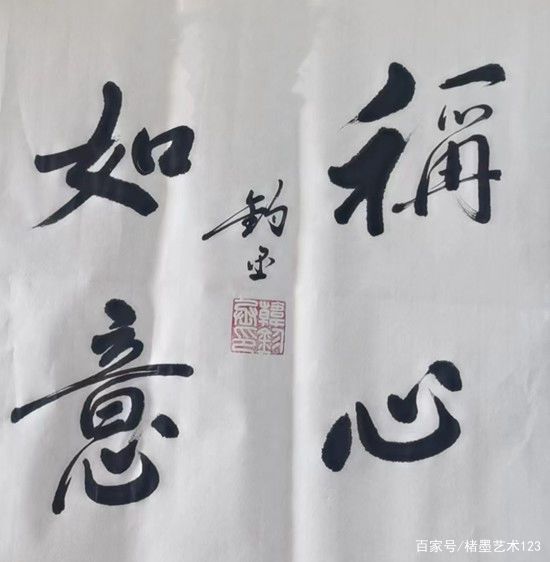 稱心
如意
百家号/楮墨艺术123